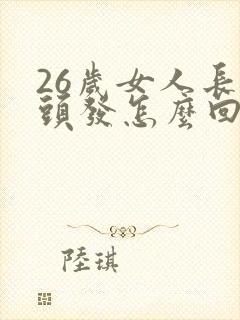 26歲女人長
頭發怎麼回
陸琪